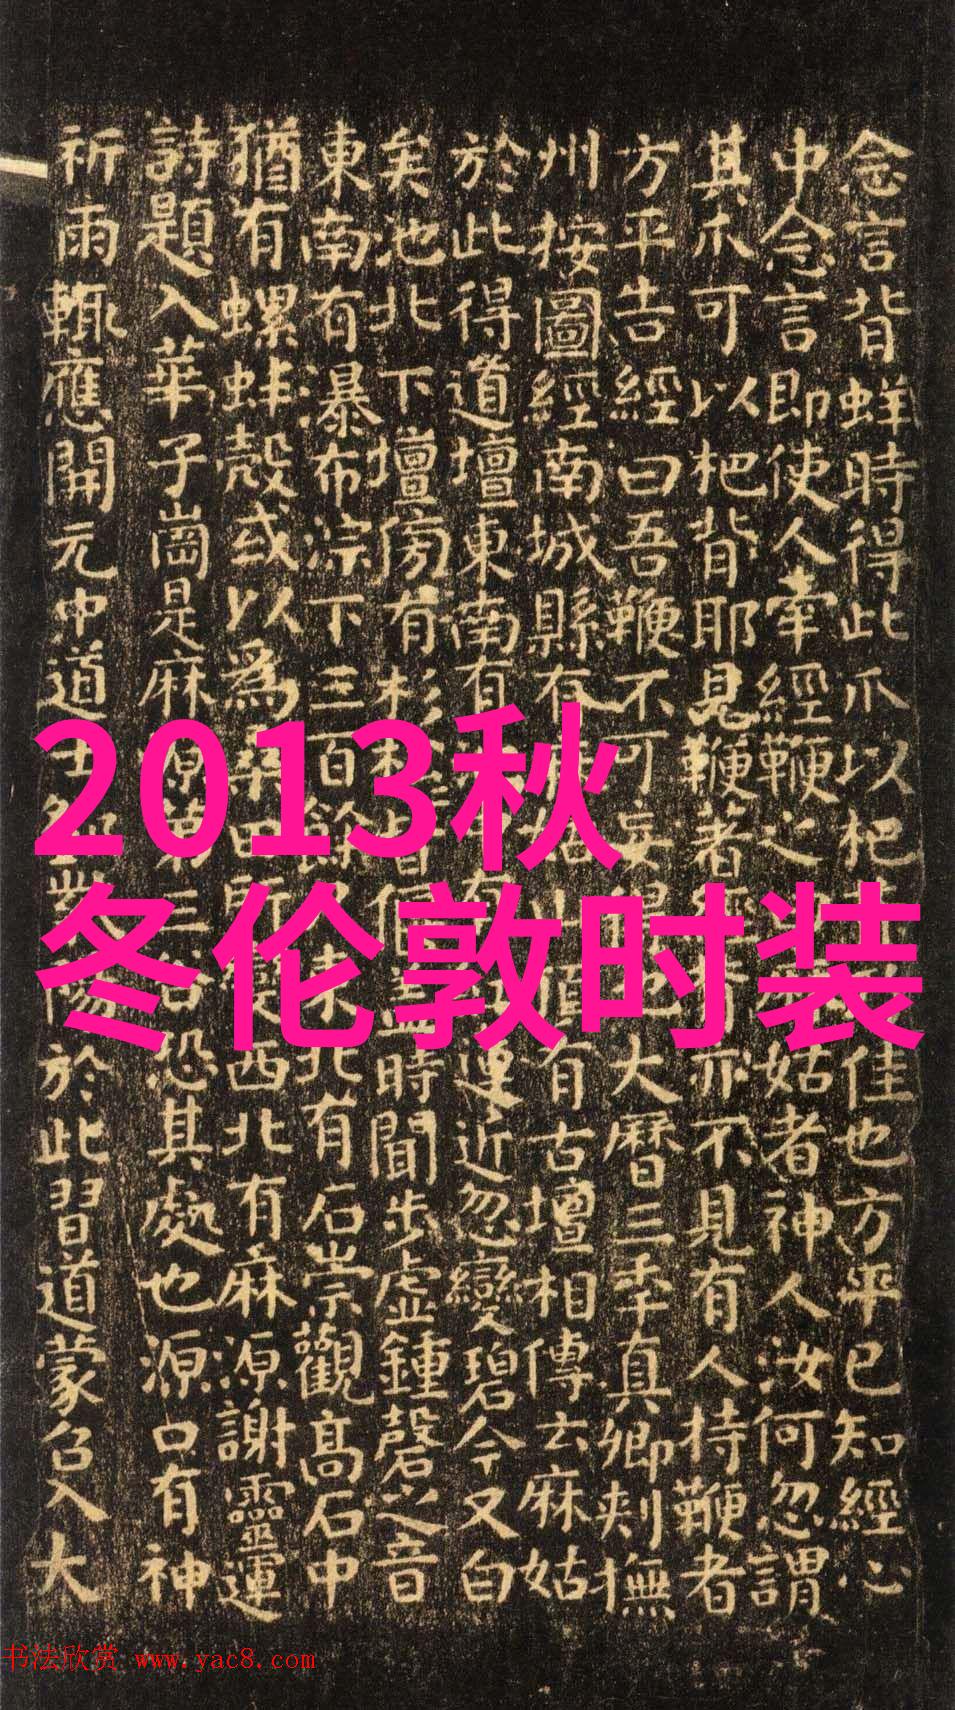 2013秋
冬伦敦时装
念言背蛘時得此爪以杷佳也方平已知經心
中念言即使人牽經鞭之姑者神人汝何忽謂
其爪可以杷背耶見鞭著背亦不見有人持鞭者
方平告經曰吾鞭不可妄得也大曆三年真卿刺撫
州按圖經南城縣有姑山頂有古壇相傳云麻姑
於此得道壇東南有紅蓮近忽變碧今又白
矣池北下壇傍有杉松皆偃蓋時聞步虛鍾磬之音
東南有瀑布淙下三百餘尺東北有石崇觀高石中
猶有螺蚌殼或以為桑田所變西北有麻源謝靈運
詩題入華子崗是麻源第三谷恐其處也源口有神
祈雨輒應開元中道士陽於此習道蒙召入大
书法欣赏 www.yac8.com